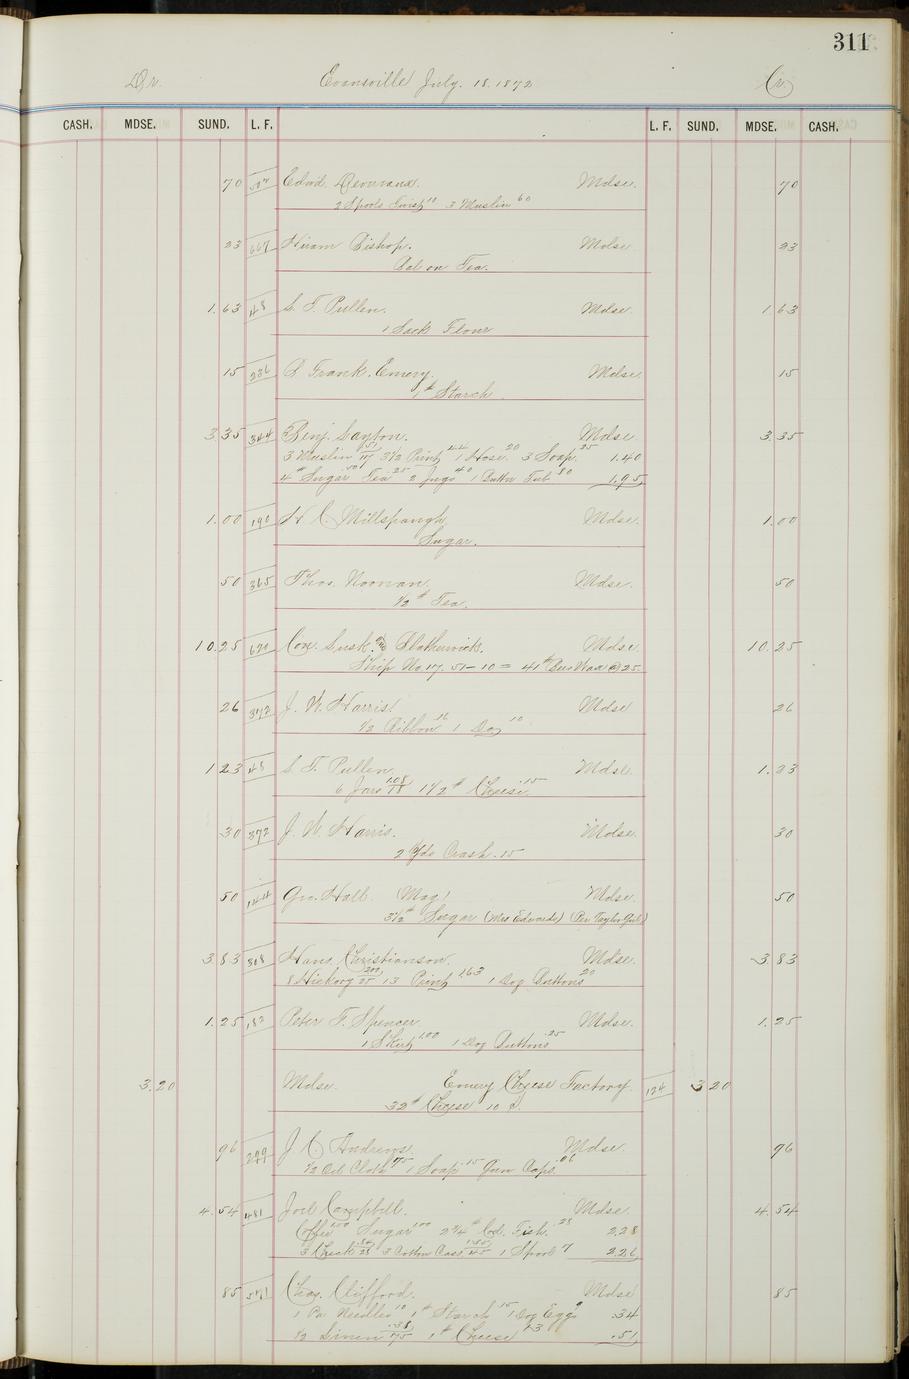 311
Dr. Evansville July. 18. 1872 Cr
CASH. MDSE. SUND. L. F. L. F. SUND. MDSE. CASH.
70 Edwd. Mdse. 70
2 Spools Twist 10 3 Muslin 60
23 667 Hiram Bishop. Mdse 23
Bal on Tea.
1.63 48 S. T. Pullen. Mdse. 1.63
1 Sack Flour
15 236 D Frank. Emery. Mdse. 15
1 # Starch
3.35 344 Benj. Layton. Mdse. 3.35
3 Muslin 17 51 3 1/2 Print 44 1 Hose 20 3 Soap 25 1.40
4 # Sugar 50 Tea 25 2 Jugs 40 1 Butter Tub 80 1.95
1.00 190 N C. Millspaugh Mdse. 1.00
Sugar.
50 365 Thos. Noonan. Mdse. 50
1/2 # Tea.
10.25 Con. Lusk. & Mdse. 10.25
Ship No. 17. 51 - 10 = 41 # Bees Wax @ 25.
26 372 J. W. Harris. Mdse 26
1/2 Ribbon 16 1 Doz 10
1 23 48 S. T. Pullen. Mdse. 1.23
6 Jars 18 1.08 1 1/2 # Cheese .15
30 372 J. W. Harris. Mdse. 30
2 Yds Crash .15
50 144 Geo. Hall. (Mag) Mdse. 50
3 1/2 # Sugar (Mrs Edwards) (Per Taylor Girl)
3.83 308 Hans Christianson. Mdse. 3.83
8 Hickory 25 200 13 Print 1.63 1 Doz Buttons 20
1.25 182 Peter F. Spencer Mdse. 1.25
1 Shirt 1.00 1 Doz Buttons .25
3.20 Mdse. Emery Cheese Factory. 124 3 20
32 # Cheese 10 ¢.
96 299 J. C. Andrews. Mdse. 96
1/2 Oil Cloth 75 1 Soap 15 Gun Caps .06
4.54 481 Joel Campbell. Mdse. 4.54
Coffee 1.00 Sugar 1.00 2 3/4 # Cod. Fish. 28 2.28
3 Check 28 .84 3 Cotton 45 1.35 1 Spool 7 2.26
85 571 Chas. Clifford. Mdse 85
1 Pa Needles 10 1 # Starch 15 1 Doz Eggs 9 .34
1/2 Linen 75 .38 1 # Cheese 13 .51